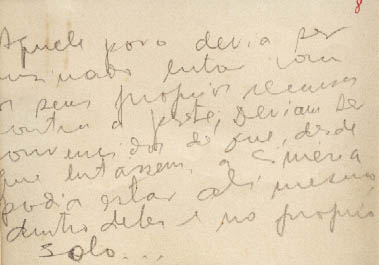 8
Aquele povo devia ser
ensinado lutar com
os seus proprios recursos
contra a peste, Deviam ser
convencidos de que, desde
que lutassem, a
podia estar ali mesmo,
dentro deles e no proprio
solo...